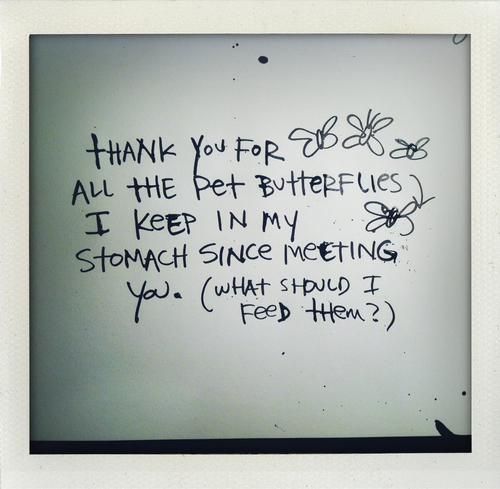 THANK YOU FOR
ALL THE Pet BUTTERFLIES
I KEEP IN MY
STOMACH SINCE MEETING
YOU. (WHAT SHOULD I
FEED THEM?)